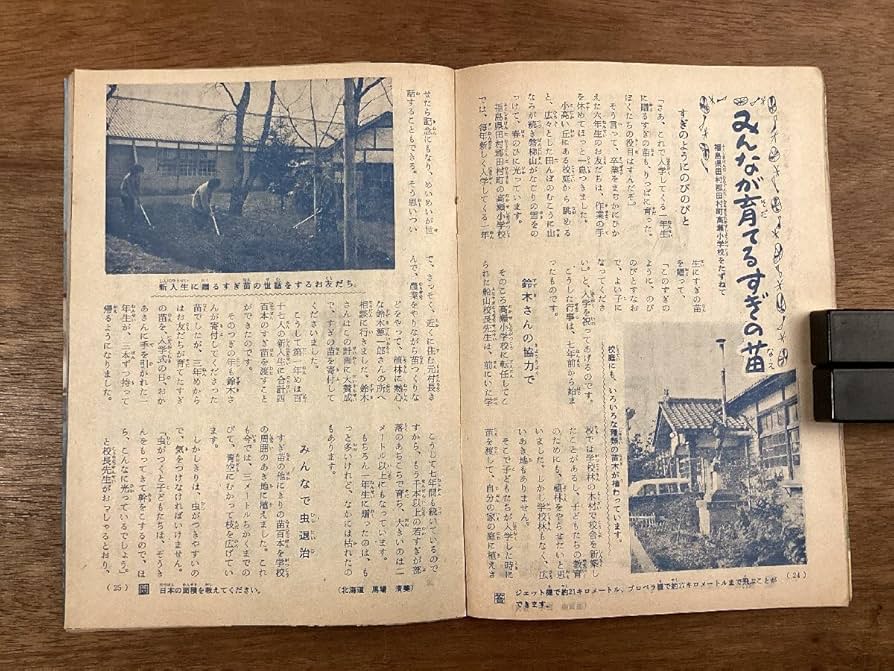 みんなが育てるすぎの苗
福島県田村郡田村町高瀬小学校をたずねて
すぎのようにのびのびと
「さあ、これで入学してくる一年生
に贈るすぎの苗も、りっぱに育った。
ぼくたちの役目はすんだぞ。」
そう言って、卒業をまぢかにひか
えた六年生のお友だちは、作業の手
を休めてほっと一息つきました。
小高い丘にある校庭から眺める
と、広々とした田んぼのむこうに山
なみが続き磐梯山がなごりの雪をの
っけて、春のひに光っています。
福島県田村郡田村町の高瀬小学校
では、毎年新しく入学してくる一年
生にすぎの苗
を贈って、
「このすぎの
ように、のび
のびとすなお
で、よい子に
なってくださ
い。」と、入学を祝ってあげるのです。
こうした行事は、七年前から始ま
ったものです。
鈴木さんの協力で
そのころ高瀬小学校に転任してこ
られた船山校長先生は、前にいた学
校庭にも、いろいろな種類の苗木が植わっています。
校では学校林の木材で校舎を新築し
たことがあるし、子どもたちの教育
のためにも、植林をやらせたいと思
いました。しかし学校林もなく、広
いあき地もありません。
そこで子どもたちが入学した時に
苗を渡して、自分の家の庭に植えさ
(24)
答 ジェット機で約21キロメートル、プロペラ機で約
メートルまで飛ぶことが
できます。
せたら記念にもなり、めいめいが世
話することもできる。そう思いつい
新入生に贈るすぎ苗の世話をするお友だち。
て、さっそく、近くに住む元村長さ
んで、農業をやりながら苗つくりな
どをやって、植林に熱心
な鈴木
さんの所へ
相談に行きました。鈴木
さんはこの計画に大賛成
で、すぎの苗を寄付して
くださいました。
こうして第一年めは百
十七人の新入生に合計四
百本のすぎ苗を渡すこと
ができたのです。
そのつぎの年も鈴木さ
んが寄付してくださった
苗でしたが、三年めから
はお友だちが育てたすぎ
の苗を、入学式の日、おか
あさんに手を引かれた一
年生が、三本ずつ持って
帰るようになりました。
こうして七年間も続いているので
すから、もう千本以上の若すぎが部
落のあちこちで育ち、大きいのは二
メートル以上にもなっています。
もちろん一年生に贈ったのは、も
っと多いけれど、なかには枯れたの
もあります。
みんなで虫退治
すぎ苗の他にきりの苗百本を学校
の周囲のあき地に植えました。これ
も今では、三メートルちかくまでの
びて、青空にむかって枝を広げてい
ます。
しかしきりは、虫がつきやすいの
で、気をつけなければいけません。
「虫がつくと子どもたちは、ぞうき
んをもってきて幹をこするので、ほ
ら、こんなに光っているでしょう。」
と校長先生がおっしゃるとおり、
(25)
問 日本の面積を教えてください。
(北海道 馬場